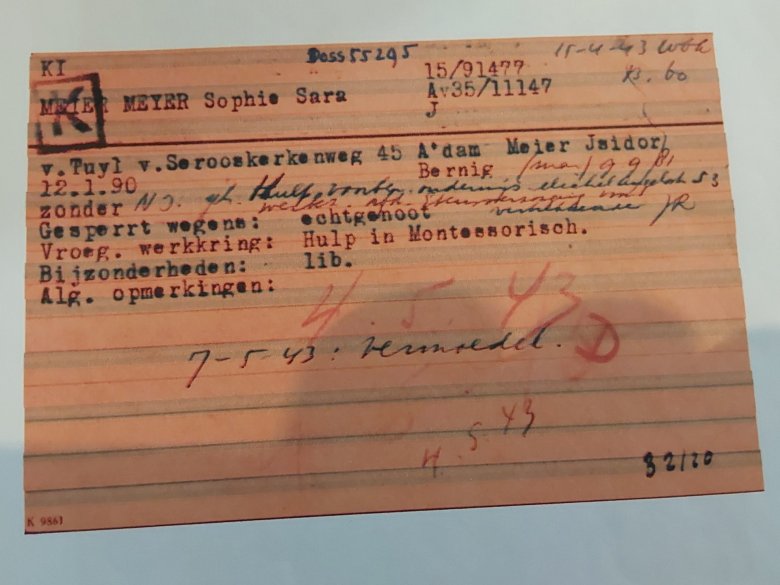 KI Doss 55295 15-4-43
15/91477
MEIER MEYER Sophie Sara Av35/11147
K J
v.Tuyl v.Serooskerkenweg 45 A'dam Meier Jsidor
12.1.90 Bernig (man) 9 9 81
zonder
Gesperrt wegens: echtgenoot
Vroeg. werkkring: Hulp in Montessorisch.
Bijzonderheden: lib.
Alg. opmerkingen:
4. 5. 43
7-5-43: vermoedel. D
4. 5 43
32/20
K 9861